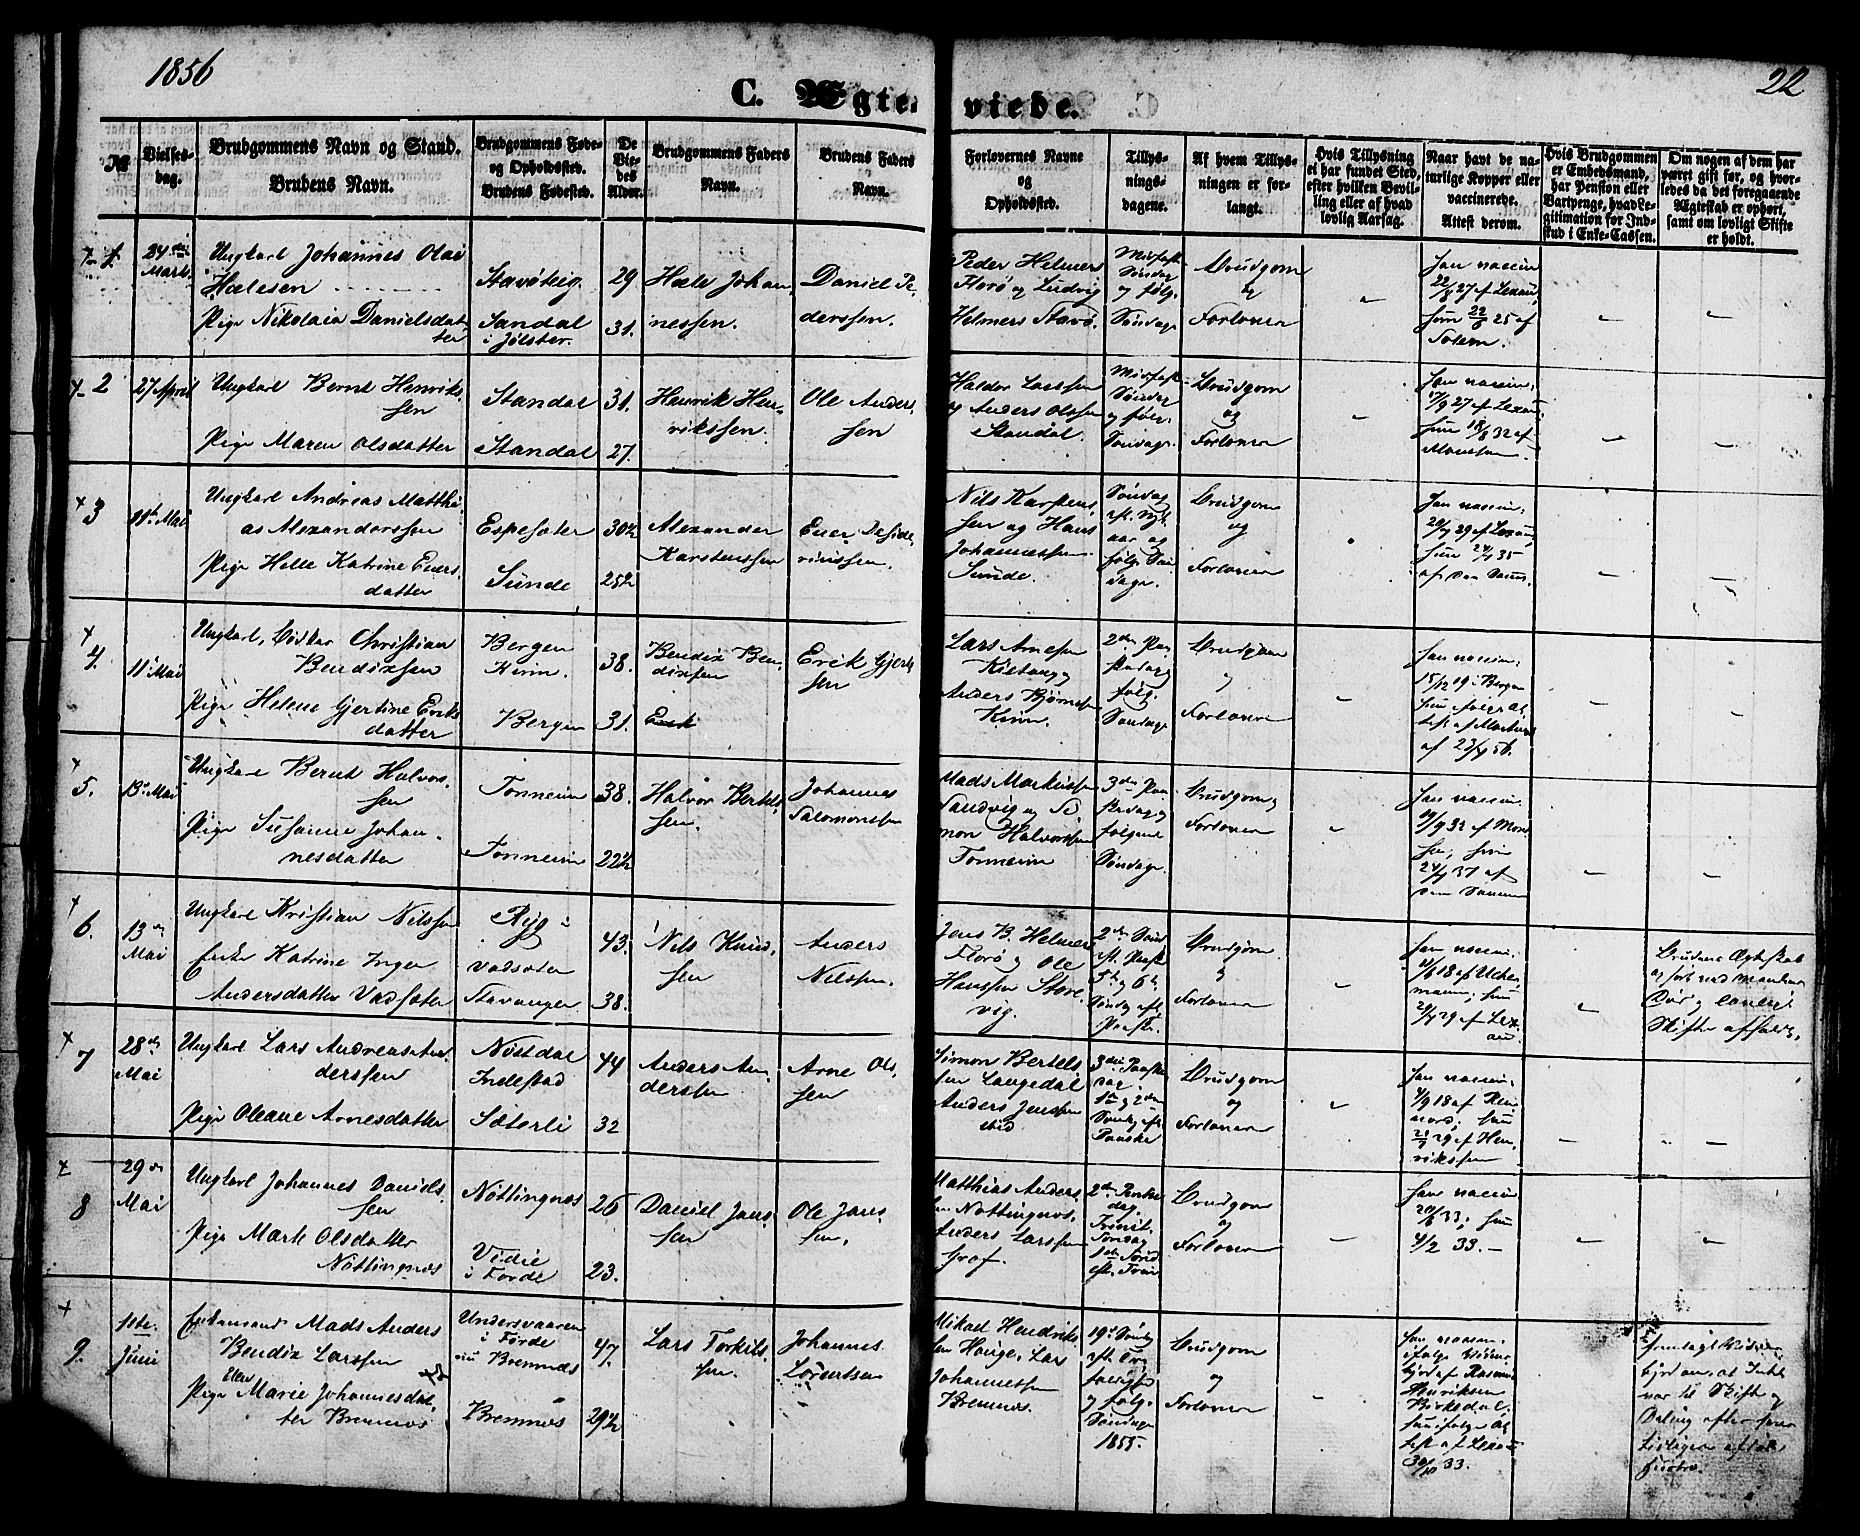 1856
22
C. Ægteviede.
№
Vielses-
dag.
Brudgommens Navn og Stand.
Brudens Navn.
Brudgommens Føde-
og Opholdssted.
Brudens Fødested.
De
Vie-
des
Alder.
Brudgommens Faders
Navn.
Brudens Faders
Navn.
Forlovernes Navne
og
Opholdssted.
Tillys-
nings-
dagene.
Af hvem Tillys-
ningen er for-
langt.
Hvis Tillysning
ei har fundet Sted,
efter hvilken Bevil-
ling eller af hvad
lovlig Aarsag.
Naar havt de na-
turlige Kopper eller
vaccinerede.
Attest derom.
Hvis Brudgommen
er Embedsmand,
har Pension eller
Vartpenge, hvad Le-
gitimation for Ind-
skud i Enke-Cassen.
Om nogen af dem har
været gift før, og hvor-
ledes da det foregaaende
Ægteskab er ophørt,
samt om lovligt Skifte
er holdt.
1.
24de
Marts
Ungkarl Johannes Olai
Hælesen
Pige Nikolaia Danielsdat-
ter
Stavøteig
Sandal
i Jølster.
29
31.
Hæle Johan-
nessen.
Daniel Pe-
derssen.
Peder Helmers
Florø og Ludvig
Helmers Stavø.
Søndag
og følg.
Søndage
Brudgom
og
Forlover
Han vaccin.
27 af Lexau,
hun 22/6 25 af
2
27 April
Ungkarl Bernt Henriks-
sen
Pige Maren Olsdatter
Standal
Standal
31.
27.
Henrik Hen-
rikssen.
Ole Anders-
sen
Haldor Larssen
og Anders Olssen
Standal.
Søndag
og følg.
Søndage.
Brudgom
og
Forlover
Han vaccin.
17/9 27 af Lexau.
hun 18/8 32 af
Monssen.
3
11te Mai
Ungkarl Andreas Matthi-
as Alexanderssen
Pige Helle Katrine Eners-
datter
Espesæter
Sunde
30½
25½
Alexander
Karstenssen
Ener Deside-
riussen.
Nils Karstens-
sen og Hans
Johannessen
Sunde.
Søndag
eft. Nyt-
aar og
følg. Søn-
dage.
Brudgom
og
Forlover
Han vaccin.
29 af Lexau,
hun 24/7 35
4.
11te Mai
Ungkarl, Bødker Christian
Bendixsen
Pige Helene Gjertine Eriks
datter
Bergen
Kinn.
Bergen
38.
31.
Bendix Ben-
dixsen
Erik
Erik Gjert-
sen
Lars Arnesen
Anders Bjørnesen
Kinn.
2den Paa-
skedag og
følg.
Søndage
Brudgom
og
Forlover
Han vaccin.
15/12 19 i Bergen
hun ifølge At-
test af
af 23/4 56.
5.
13de Mai
Ungkarl Bernt Halvors-
sen
Pige Susanne Johan-
nesdatter
Tonneim
Tonneim
38.
22½
Halvor Bertels-
sen.
Johannes
Salomonsen
Mads Markussen
Sandvig og Si-
mon Halvorssen
Tonneim
3die Paa-
skedag og
følgende
Søndage.
Brudgom og
Forlover
Han vaccin.
32 af Mons-
sen, hun
24/7 37 af
6.
13de
Mai
Ungkarl Kristian Nilssen
Enke Katrine Inger
Andersdatter Vadsæter
Ryg i
Vadsæter
Stavanger
43.
38.
Nils Knud-
sen
Anders
Nilssen.
Jens B. Helmers
Florø og Ole
Hanssen Store-
vig.
2den Sønd.
eft. Paaske
5te og 6te
Søndag eft.
Paaske.
Brudgom
og
Forlover
Han vaccin.
18 af Uchermann;
hun
29 af Lex-
au
Brudens Ægteskab
opløst ved Mandens
Død og lovligt
Skifte afholdt.
7
28de
Mai
Ungkarl Lars Andreas An-
derssen
Pige Oleane Arnesdatter
Nøstdal
Indrestad
Sæterli
44
32
Anders An-
derssen
Arne Ols-
sen
Simon Bertels-
sen Langedal
Anders Jenssen
3die Paaske
dag.
1ste og 2den
Søndag eft.
Paaske
Brudgom
og
Forlover
Han vaccin.
18 af
hun
29 af Hen-
rikssen
8
29de
Mai
Ungkarl Johannes Daniels-
sen
Pige Marte Olsdatter
Nøttingnæs
Nøttingnæs
Vidie
i Førde
26
23.
Daniel Jans-
sen
Ole Jans-
sen.
Matthias Anders-
sen Nøttingnæs,
Anders Larssen
Grov.
2den Pintse
dag,
Trinit.
Søndag
1ste Sønd.
eft. Trin.
Brudgom
og
Forlover
Han vaccin.
20/8 33; hun
4/2 33.
9.
1ste
Juni
Enkemand Mads Anders
Bendix Larssen
Pige Ellen Marie Johannesdat-
ter Bremnæs
Undersvaaren
i Førde
nu Bremnæs
Bremnæs
47.
29½
Lars Torkils-
sen.
Johannes
Lorentsen
Mikael Hendriks-
sen Hauge, Lars
Johannessen
Bremnæs.
19de Søndag
eft. Tre-
foldighed
og følg.
Søndage
1855.
Brudgom
og
Forlover
Han vaccin.
ifølge
af Rasmus
Henriksen
Birksdal.
hun ifølge At-
test af Lexau
30/10 33.
Skifte og